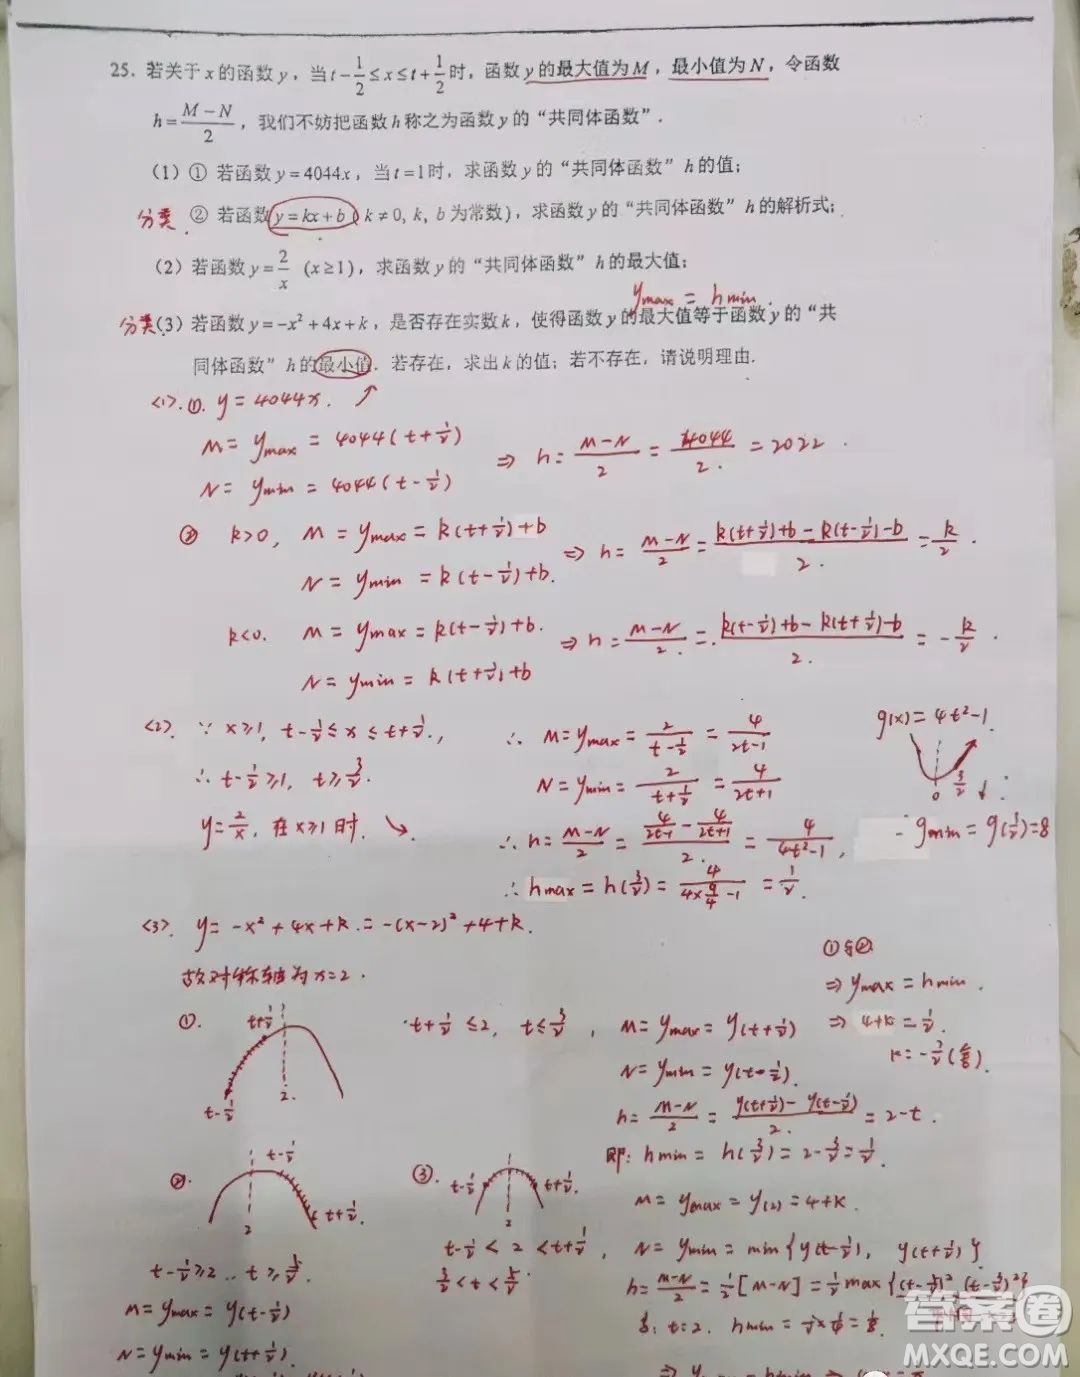 25. 若关于 x 的函数 y，当 t－1/2≤x≤t＋1/2 时，函数 y 的最大值为 M，最小值为 N，令函数
h＝(M－N)/2，我们不妨把函数 h 称之为函数 y 的“共同体函数”．
(1) ① 若函数 y＝4044x，当 t＝1 时，求函数 y 的“共同体函数” h 的值；
分类 ② 若函数 y＝kx＋b（k≠0, k, b 为常数），求函数 y 的“共同体函数” h 的解析式；
(2) 若函数 y＝2/x (x≥1)，求函数 y 的“共同体函数” h 的最大值；
ymax = hmin.
分类 (3) 若函数 y＝－x²＋4x＋k，是否存在实数 k，使得函数 y 的最大值等于函数 y 的“共
同体函数” h 的最小值．若存在，求出 k 的值；若不存在，请说明理由．
<1>. ①. y = 4044x. ↗
M = ymax = 4044(t+1/2)
N = ymin = 4044(t-1/2)
⇒ h = (M-N)/2 = 4044/2. = 2022.
② k>0, M = ymax = k(t+1/2)+b
N = ymin = k(t-1/2)+b.
⇒ h = (M-N)/2 = (k(t+1/2)+b-k(t-1/2)-b)/2. = k/2.
k<0. M = ymax = k(t-1/2)+b.
N = ymin = k(t+1/2)+b
⇒ h = (M-N)/2. = (k(t-1/2)+b-k(t+1/2)-b)/2. = -k/2.
<2>. ∵ x≥1, t-1/2≤x≤t+1/2,
∴ t-1/2≥1, t≥3/2.
y=2/x, 在 x≥1 时. ↘
∴ M = ymax = 2/(t-1/2) = 4/(2t-1)
N = ymin = 2/(t+1/2) = 4/(2t+1)
∴ h = (M-N)/2 = (4/(2t-1) - 4/(2t+1))/2. = 4/(4t²-1),
∴ hmax = h(3/2) = 4/(4×9/4-1) = 1/2.
g(x) = 4t²-1.
0 3/2
<3>. y = -x²+4x+k. = -(x-2)²+4+k.
故对称轴为 x=2.
①.
t+1/2
t-1/2
2.
t+1/2 ≤2, t≤3/2, M = ymax = y(t+1/2)
N = ymin = y(t-1/2).
h = (M-N)/2 = (y(t+1/2)-y(t-1/2))/2. = 2-t.
即: hmin = h(3/2) = 2-3/2 = 1/2.
⇒ ymax = hmin.
⇒ 4+k = 1/2.
②.
t-1/2
t+1/2.
2
t-1/2≥2.. t≥5/2.
M = ymax = y(t-1/2)
N = ymin = y(t+1/2).
③.
t-1/2
t+1/2.
2
t-1/2 < 2 < t+1/2,
3/2 < t < 5/2.
M = ymax = y(2) = 4+k.
N = ymin = min{y(t-1/2), y(t+1/2)}
答案圈
MXQE.COM